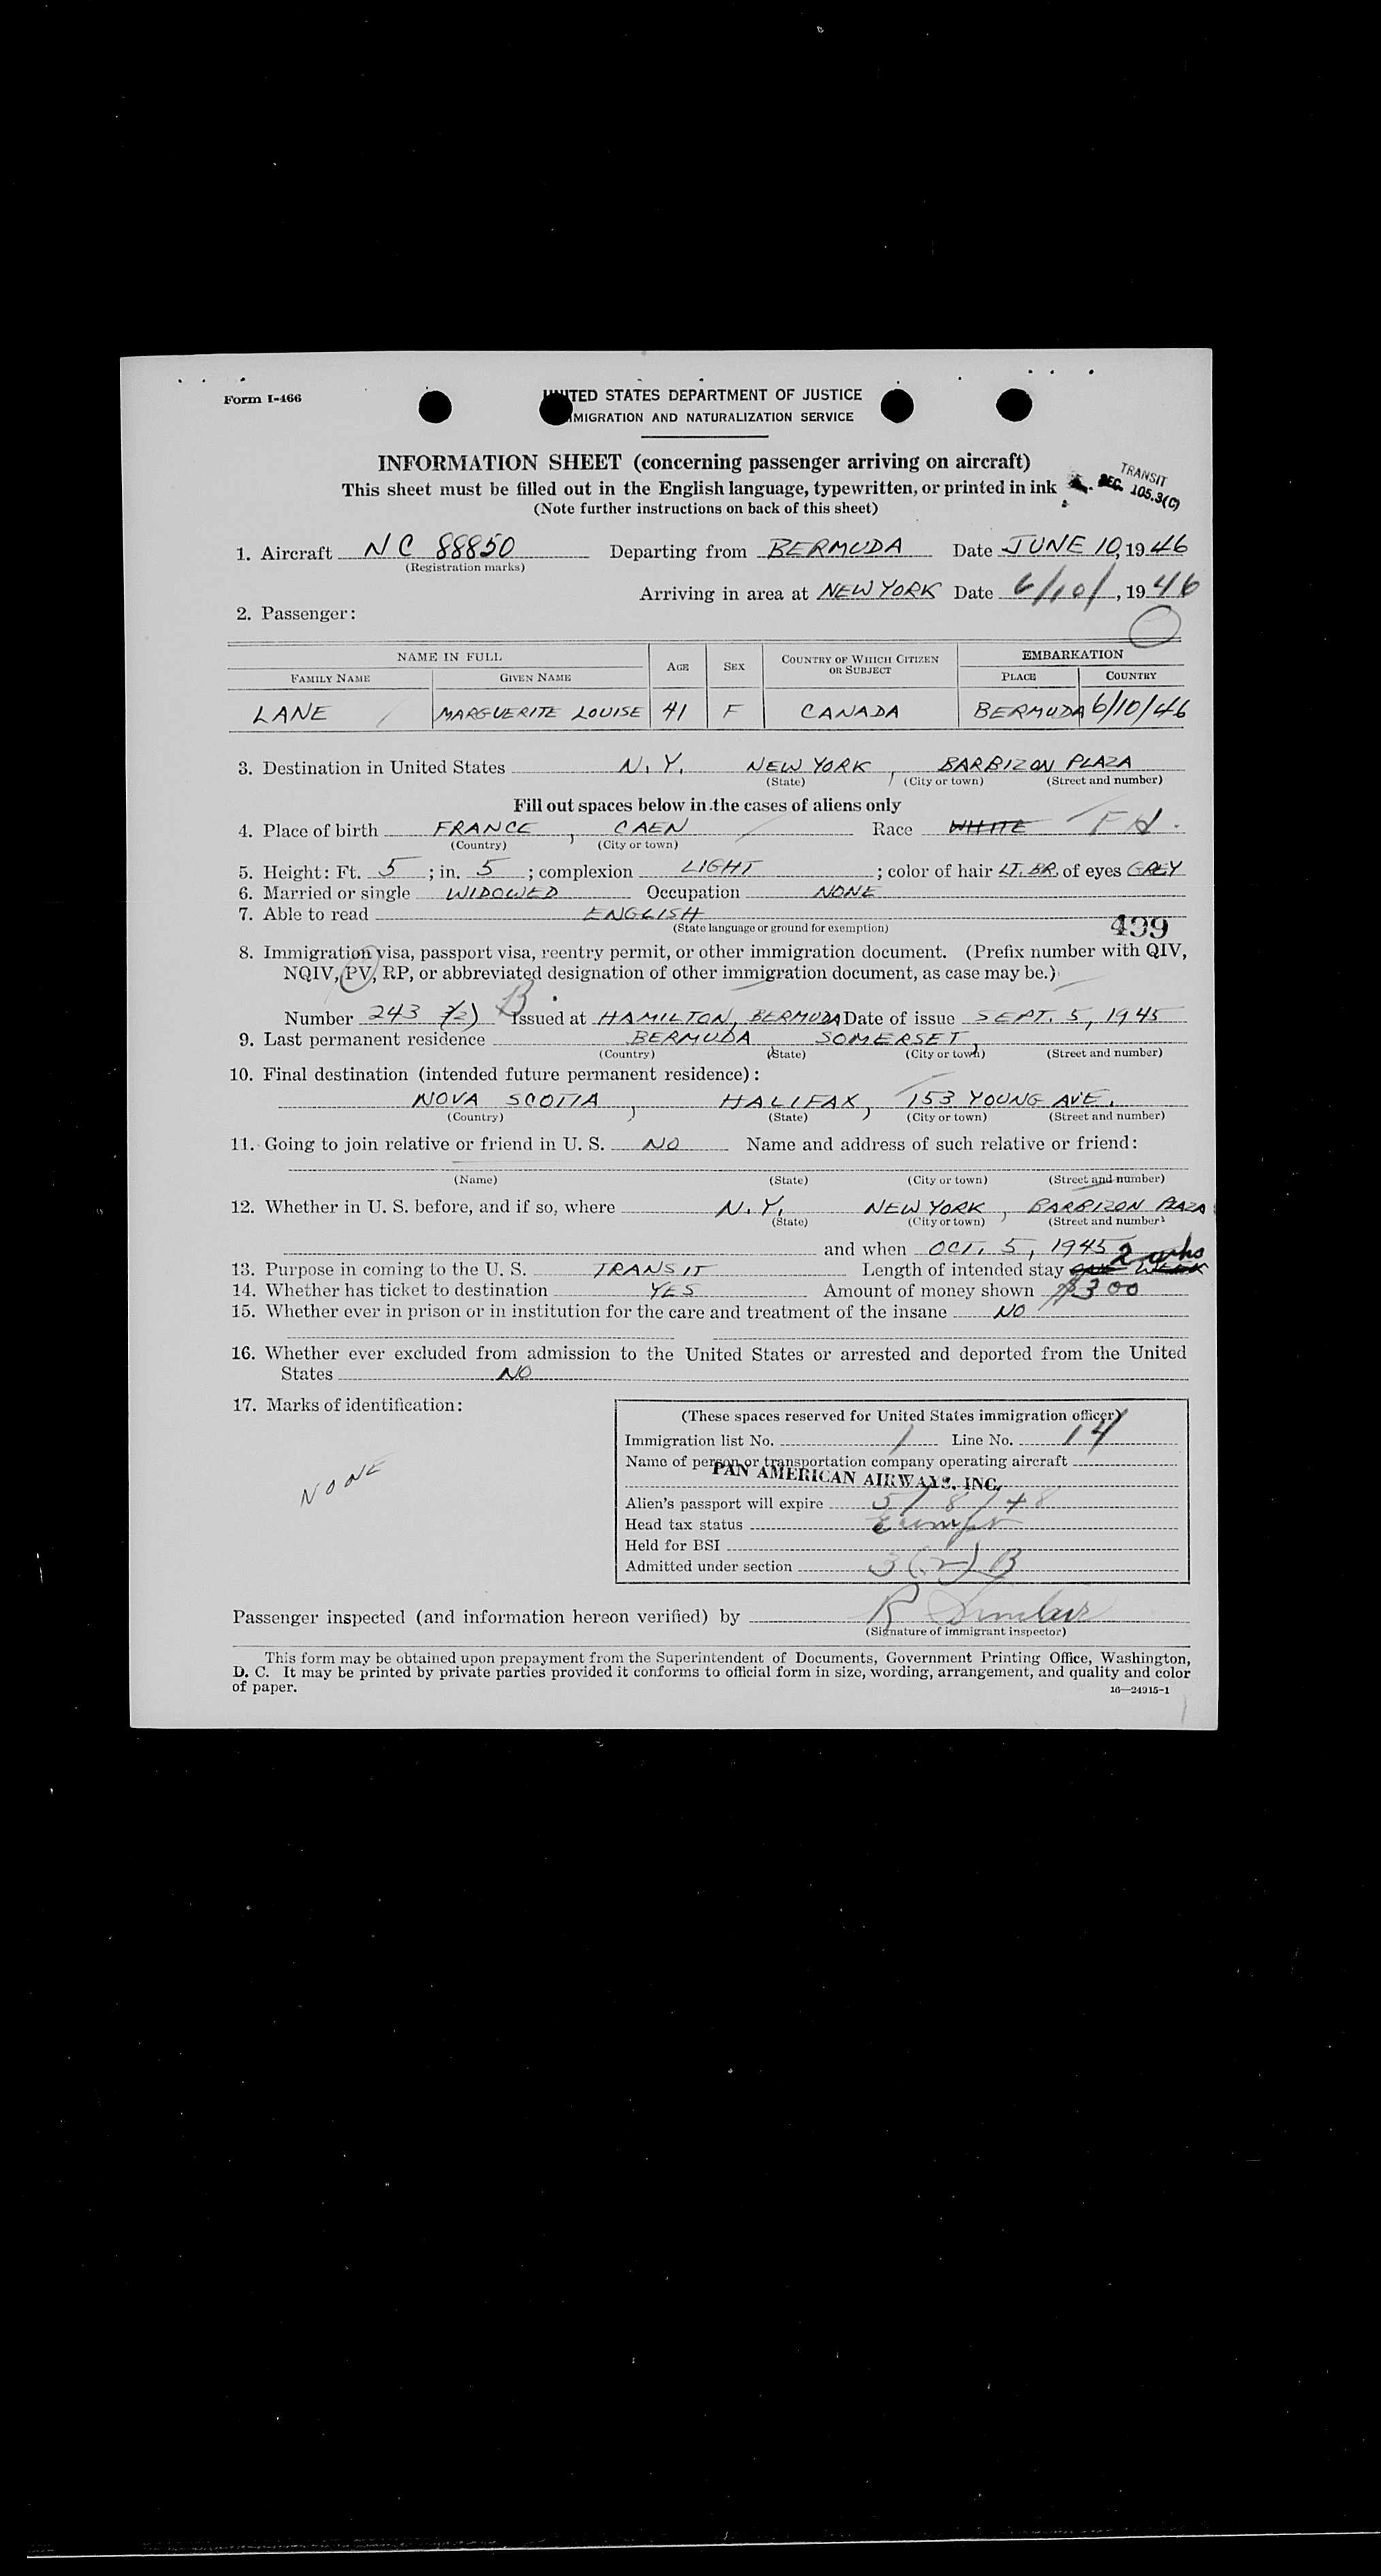 Form I-466
UNITED STATES DEPARTMENT OF JUSTICE
IMMIGRATION AND NATURALIZATION SERVICE
INFORMATION SHEET (concerning passenger arriving on aircraft)
This sheet must be filled out in the English language, typewritten, or printed in ink
(Note further instructions on back of this sheet)
TRANSIT
REG. 105.3(C)
1. Aircraft NC 88850 Departing from BERMUDA Date JUNE 10, 1946
(Registration marks)
Arriving in area at NEW YORK Date 6/10/, 1946
2. Passenger:
NAME IN FULL AGE SEX COUNTRY OF WHICH CITIZEN OR SUBJECT EMBARKATION
FAMILY NAME GIVEN NAME PLACE COUNTRY
LANE MARGUERITE LOUISE 41 F CANADA BERMUDA 6/10/46
3. Destination in United States N.Y. NEW YORK, BARBIZON PLAZA
(State) (City or town) (Street and number)
Fill out spaces below in the cases of aliens only
4. Place of birth FRANCE, CAEN Race WHITE
(Country) (City or town)
5. Height: Ft. 5; in. 5; complexion LIGHT; color of hair LT. BR. of eyes GREY
6. Married or single WIDOWED Occupation NONE
7. Able to read ENGLISH
(State language or ground for exemption)
499
8. Immigration visa, passport visa, reentry permit, or other immigration document. (Prefix number with QIV,
NQIV, PV, RP, or abbreviated designation of other immigration document, as case may be.)
Number 243 3(2) B Issued at HAMILTON, BERMUDA Date of issue SEPT. 5, 1945
9. Last permanent residence BERMUDA, SOMERSET,
(Country) (State) (City or town) (Street and number)
10. Final destination (intended future permanent residence):
NOVA SCOTIA, HALIFAX, 153 YOUNG AVE.
(Country) (State) (City or town) (Street and number)
11. Going to join relative or friend in U. S. NO Name and address of such relative or friend:
(Name) (State) (City or town) (Street and number)
12. Whether in U. S. before, and if so, where N.Y. NEW YORK, BARBIZON PLAZA
(State) (City or town) (Street and number)
and when OCT. 5, 1945
13. Purpose in coming to the U. S. TRANSIT Length of intended stay ONE WEEK 2 wks
14. Whether has ticket to destination YES Amount of money shown $300
15. Whether ever in prison or in institution for the care and treatment of the insane NO
16. Whether ever excluded from admission to the United States or arrested and deported from the United
States NO
17. Marks of identification:
NONE
(These spaces reserved for United States immigration officer)
Immigration list No. 1 Line No. 14
Name of person or transportation company operating aircraft
PAN AMERICAN AIRWAYS, INC.
Alien's passport will expire 5/8/48
Head tax status Exempt
Held for BSI
Admitted under section 3(2)B
Passenger inspected (and information hereon verified) by R Sinclair
(Signature of immigrant inspector)
This form may be obtained upon prepayment from the Superintendent of Documents, Government Printing Office, Washington,
D. C. It may be printed by private parties provided it conforms to official form in size, wording, arrangement, and quality and color
of paper.
16—24915-1